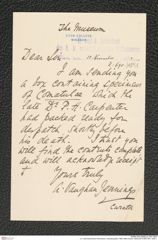 The Museum
Eton College
Windsor
Dear Sir,
I am sending you
a box containing specimens
of Comatulae which the
late Dr. P. H. Carpenter
had packed ready for
despatch shortly before
his death. I trust you
will find the contents complete
and will acknowledge receipt
Yours truly
A Vaughan Jennings
Curator